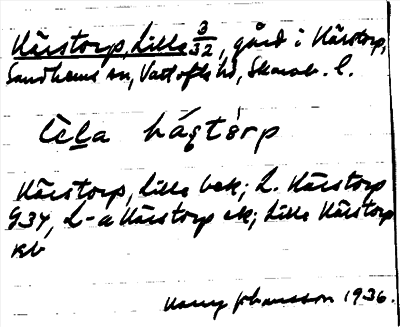 Kårstorp, Lilla 3/32, gård i Kårstorp,
Sandhems sn, Vartofta hd, Skarab. l.
lila kástòrp
Kårstorp, Lilla bek; L. Kårstorp
G34, L-a Kårstorp ek; Lilla Kårstorp
kb
Harry Johansson 1936.